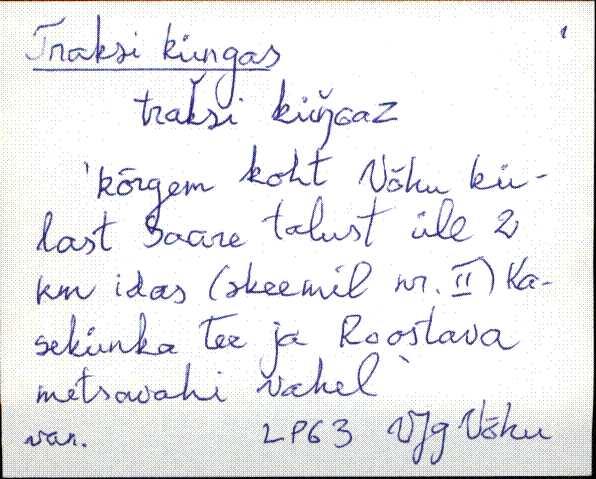 Traksi küngas
traksi küŋGaz
'kõrgem koht Võhu kü-
last Saare talust üle 2
km idas (skeemil nr. II) Ka-
sekünka Tee ja Roostava
metsavahi vahel'
var. LP63 VJg Võhu